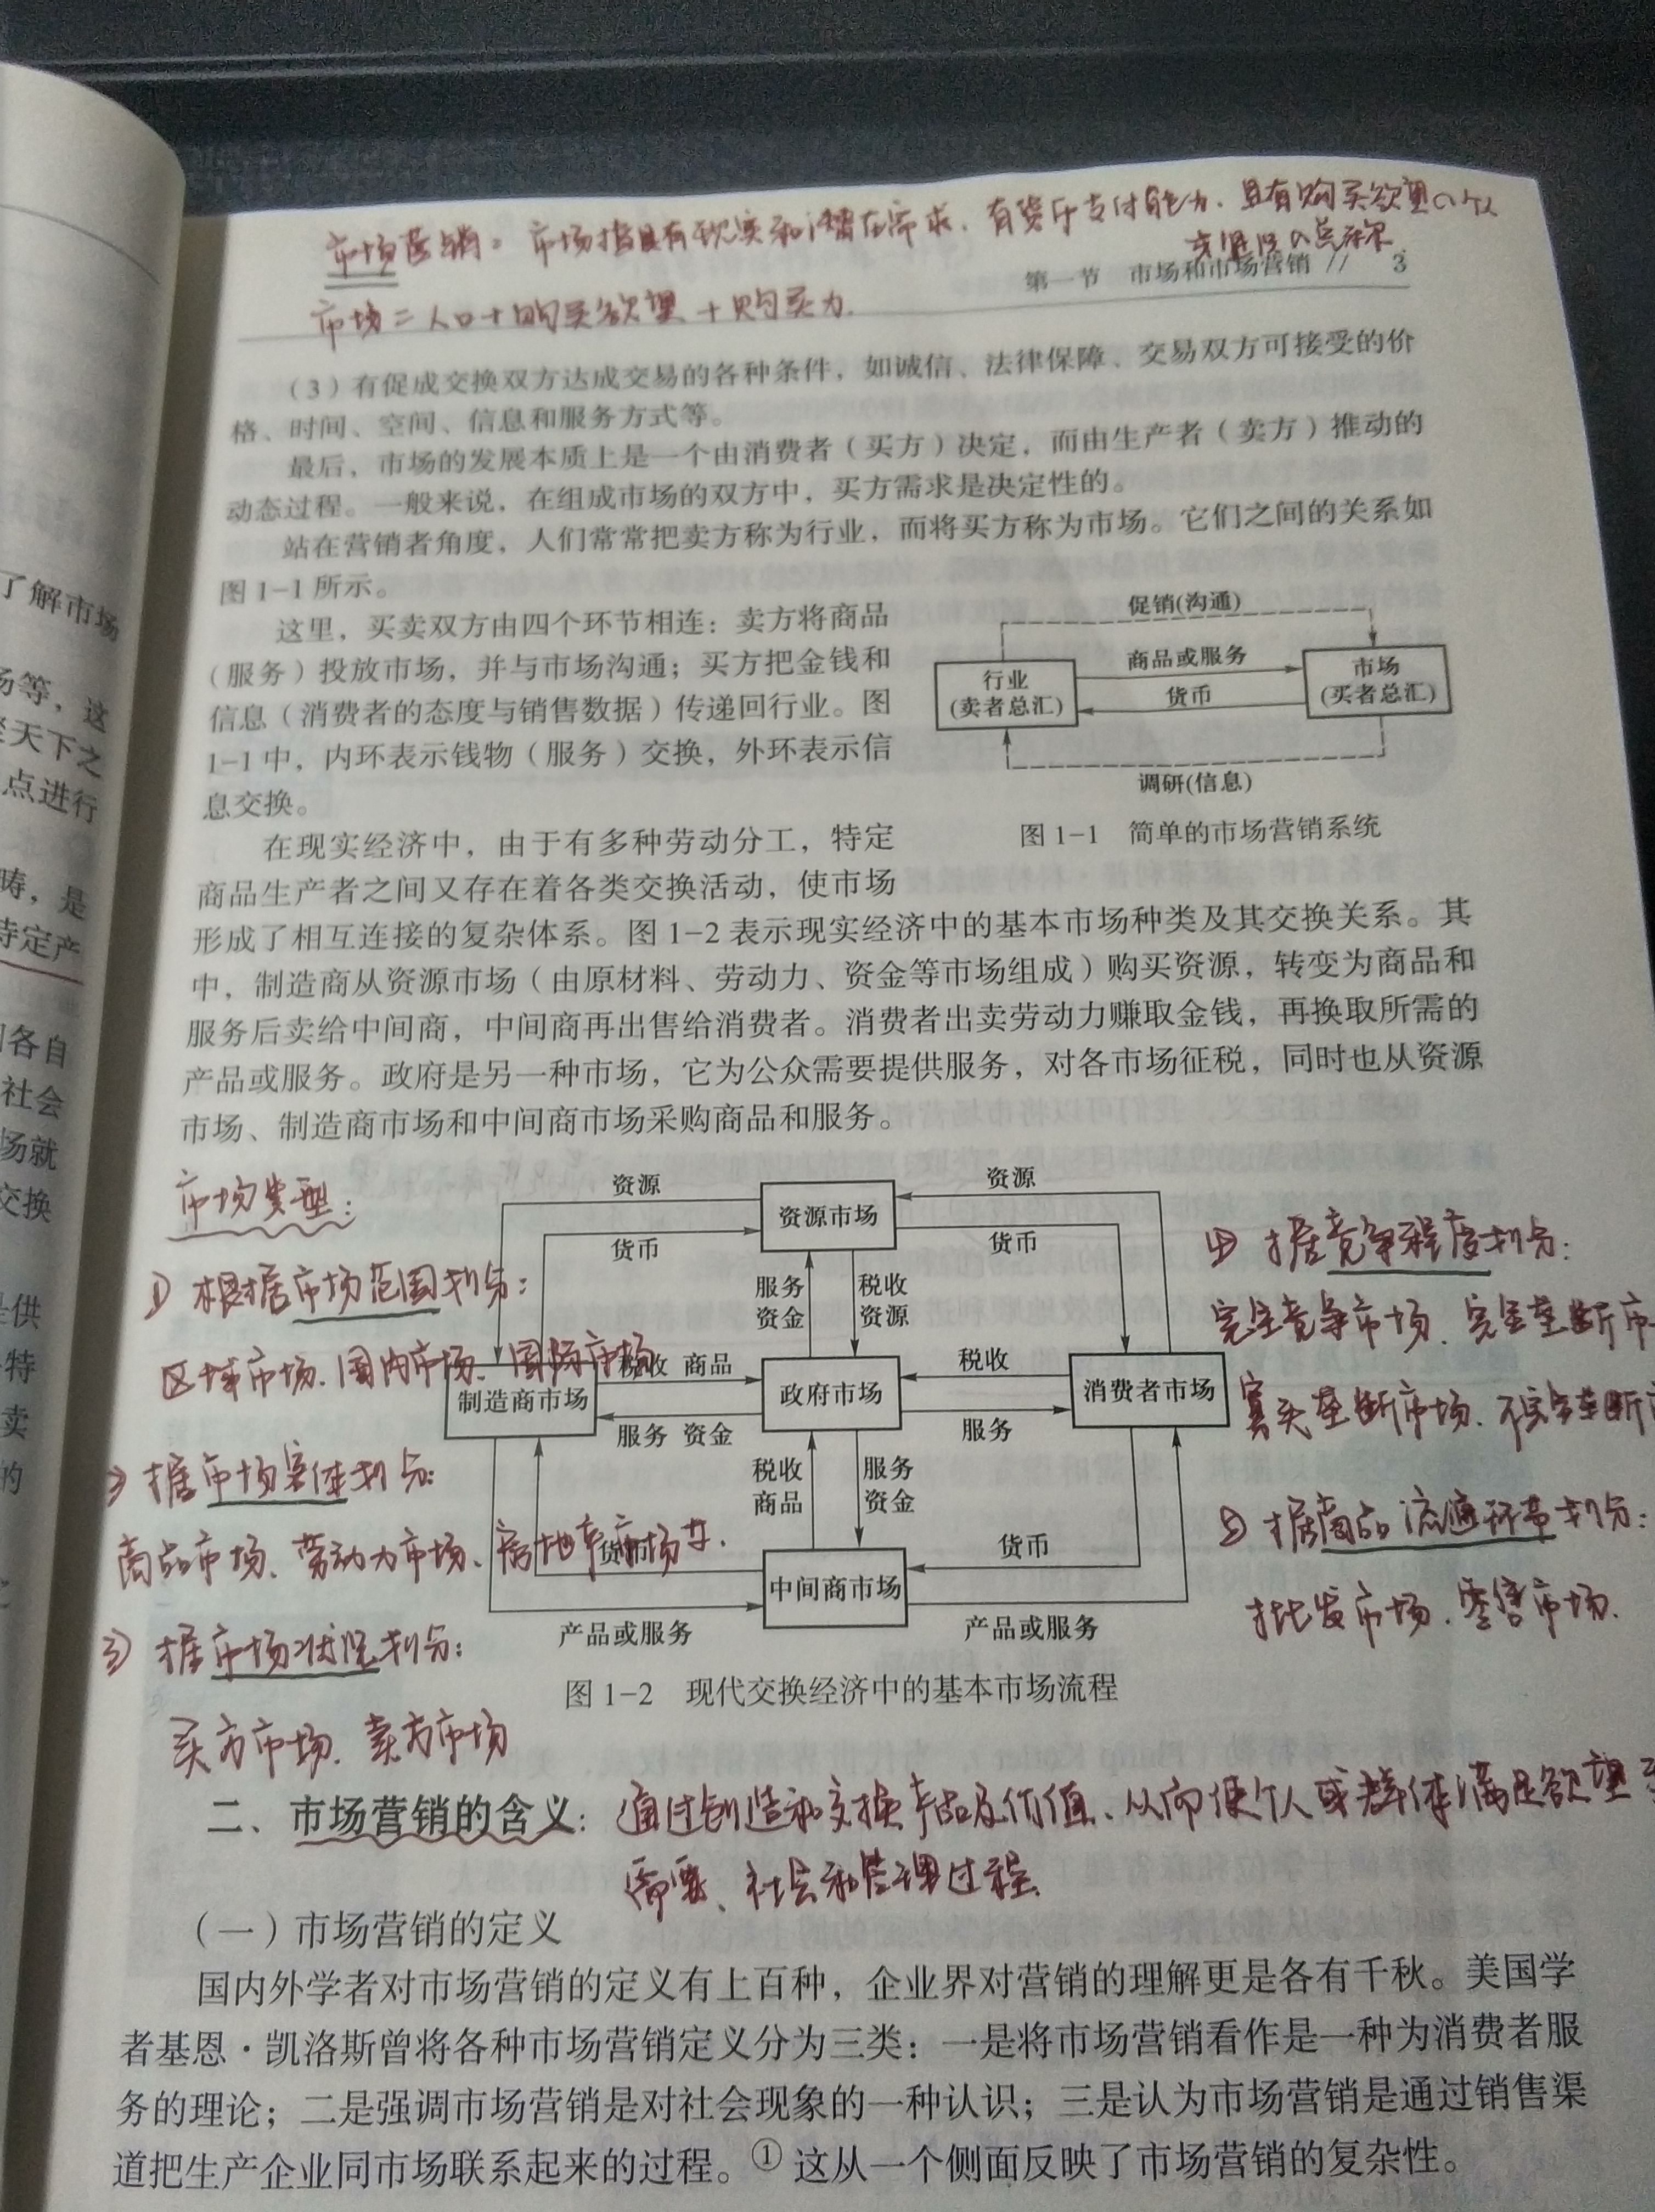 市场营销：市场指具有现实和潜在需求、有货币支付能力、且有购买欲望の个人
第一节 市场和市场营销 // 3
市场=人口+购买欲望+购买力.
（3）有促成交换双方达成交易的各种条件，如诚信、法律保障、交易双方可接受的价
格、时间、空间、信息和服务方式等。
最后，市场的发展本质上是一个由消费者（买方）决定，而由生产者（卖方）推动的
动态过程。一般来说，在组成市场的双方中，买方需求是决定性的。
站在营销者角度，人们常常把卖方称为行业，而将买方称为市场。它们之间的关系如
图1-1所示。
这里，买卖双方由四个环节相连：卖方将商品
（服务）投放市场，并与市场沟通；买方把金钱和
信息（消费者的态度与销售数据）传递回行业。图
1-1中，内环表示钱物（服务）交换，外环表示信
息交换。
促销(沟通)
行业
(卖者总汇)
商品或服务
货币
市场
(买者总汇)
调研(信息)
图1-1 简单的市场营销系统
在现实经济中，由于有多种劳动分工，特定
商品生产者之间又存在着各类交换活动，使市场
形成了相互连接的复杂体系。图1-2表示现实经济中的基本市场种类及其交换关系。其
中，制造商从资源市场（由原材料、劳动力、资金等市场组成）购买资源，转变为商品和
服务后卖给中间商，中间商再出售给消费者。消费者出卖劳动力赚取金钱，再换取所需的
产品或服务。政府是另一种市场，它为公众需要提供服务，对各市场征税，同时也从资源
市场、制造商市场和中间商市场采购商品和服务。
市场类型：
① 根据市场范围划分：
区域市场、国内市场、国际市场
② 据市场客体划分：
商品市场、劳动力市场、房地产市场等.
③ 据市场状况划分：
买方市场、卖方市场
④ 据竞争程度划分：
完全竞争市场、完全垄断市
寡头垄断市场、不完全垄断
⑤ 据商品流通环节划分：
批发市场、零售市场.
资源
资源市场
资源
货币
货币
服务
资金
税收
资源
税收 商品
制造商市场
政府市场
税收
消费者市场
服务 资金
服务
税收
商品
服务
资金
货币
货币
中间商市场
产品或服务
产品或服务
图1-2 现代交换经济中的基本市场流程
二、市场营销的含义：通过创造和交换产品及价值、从而使个人或群体满足欲望
需要、社会和管理过程.
（一）市场营销的定义
国内外学者对市场营销的定义有上百种，企业界对营销的理解更是各有千秋。美国学
者基恩·凯洛斯曾将各种市场营销定义分为三类：一是将市场营销看作是一种为消费者服
务的理论；二是强调市场营销是对社会现象的一种认识；三是认为市场营销是通过销售渠
道把生产企业同市场联系起来的过程。① 这从一个侧面反映了市场营销的复杂性。
了解市场
场等，这
天下之
点进行
畴，是
特定产
各自
社会
场就
交换
供
特
卖
的